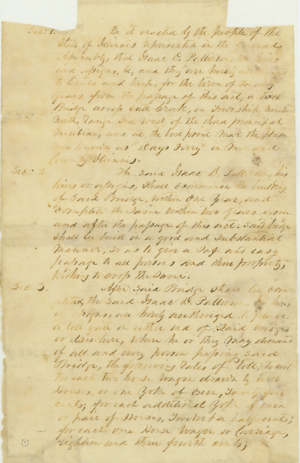 Sec: 1. Be it enacted by the people of the
State of Illinois represented in the General
Assembly, that Isaac D. his heirs
and assigns, be, and they are hereby authorized
to and keep, for the term of
years from the passage of this act, a toll
Bridge across Salt Creek, in Township
North, Range two west of the third principal
Meridian, and at the place
now known as Ferry in
County Illinois.
Sec: 2. The said Isaac D. his
heirs or assigns, shall commence the building
of said Bridge within One Year, and
complete the same within two years from
and after the passage of this act. Said bridge
shall be built in a good and substantial
manner, so as to give a safe and easy
passage to all persons and their property,
wishing to cross the same.
Sec: 3. After said Bridge shall be com-
pleted, the said Isaac D. his heirs
or assigns are hereby authorized to place
a toll gate on either end of said bridge
or elsewhere, where he or they may demand
of all and every person passing said
Bridge, the following rates of toll,
for each wagon drawn by two
Horses, or one Yoke of Oxen,
cents; for each additional Yoke of oxen
or pair of Horses, cents;
for each one Horse Wagon or Carriage,
Eighteen and three fourth cents;